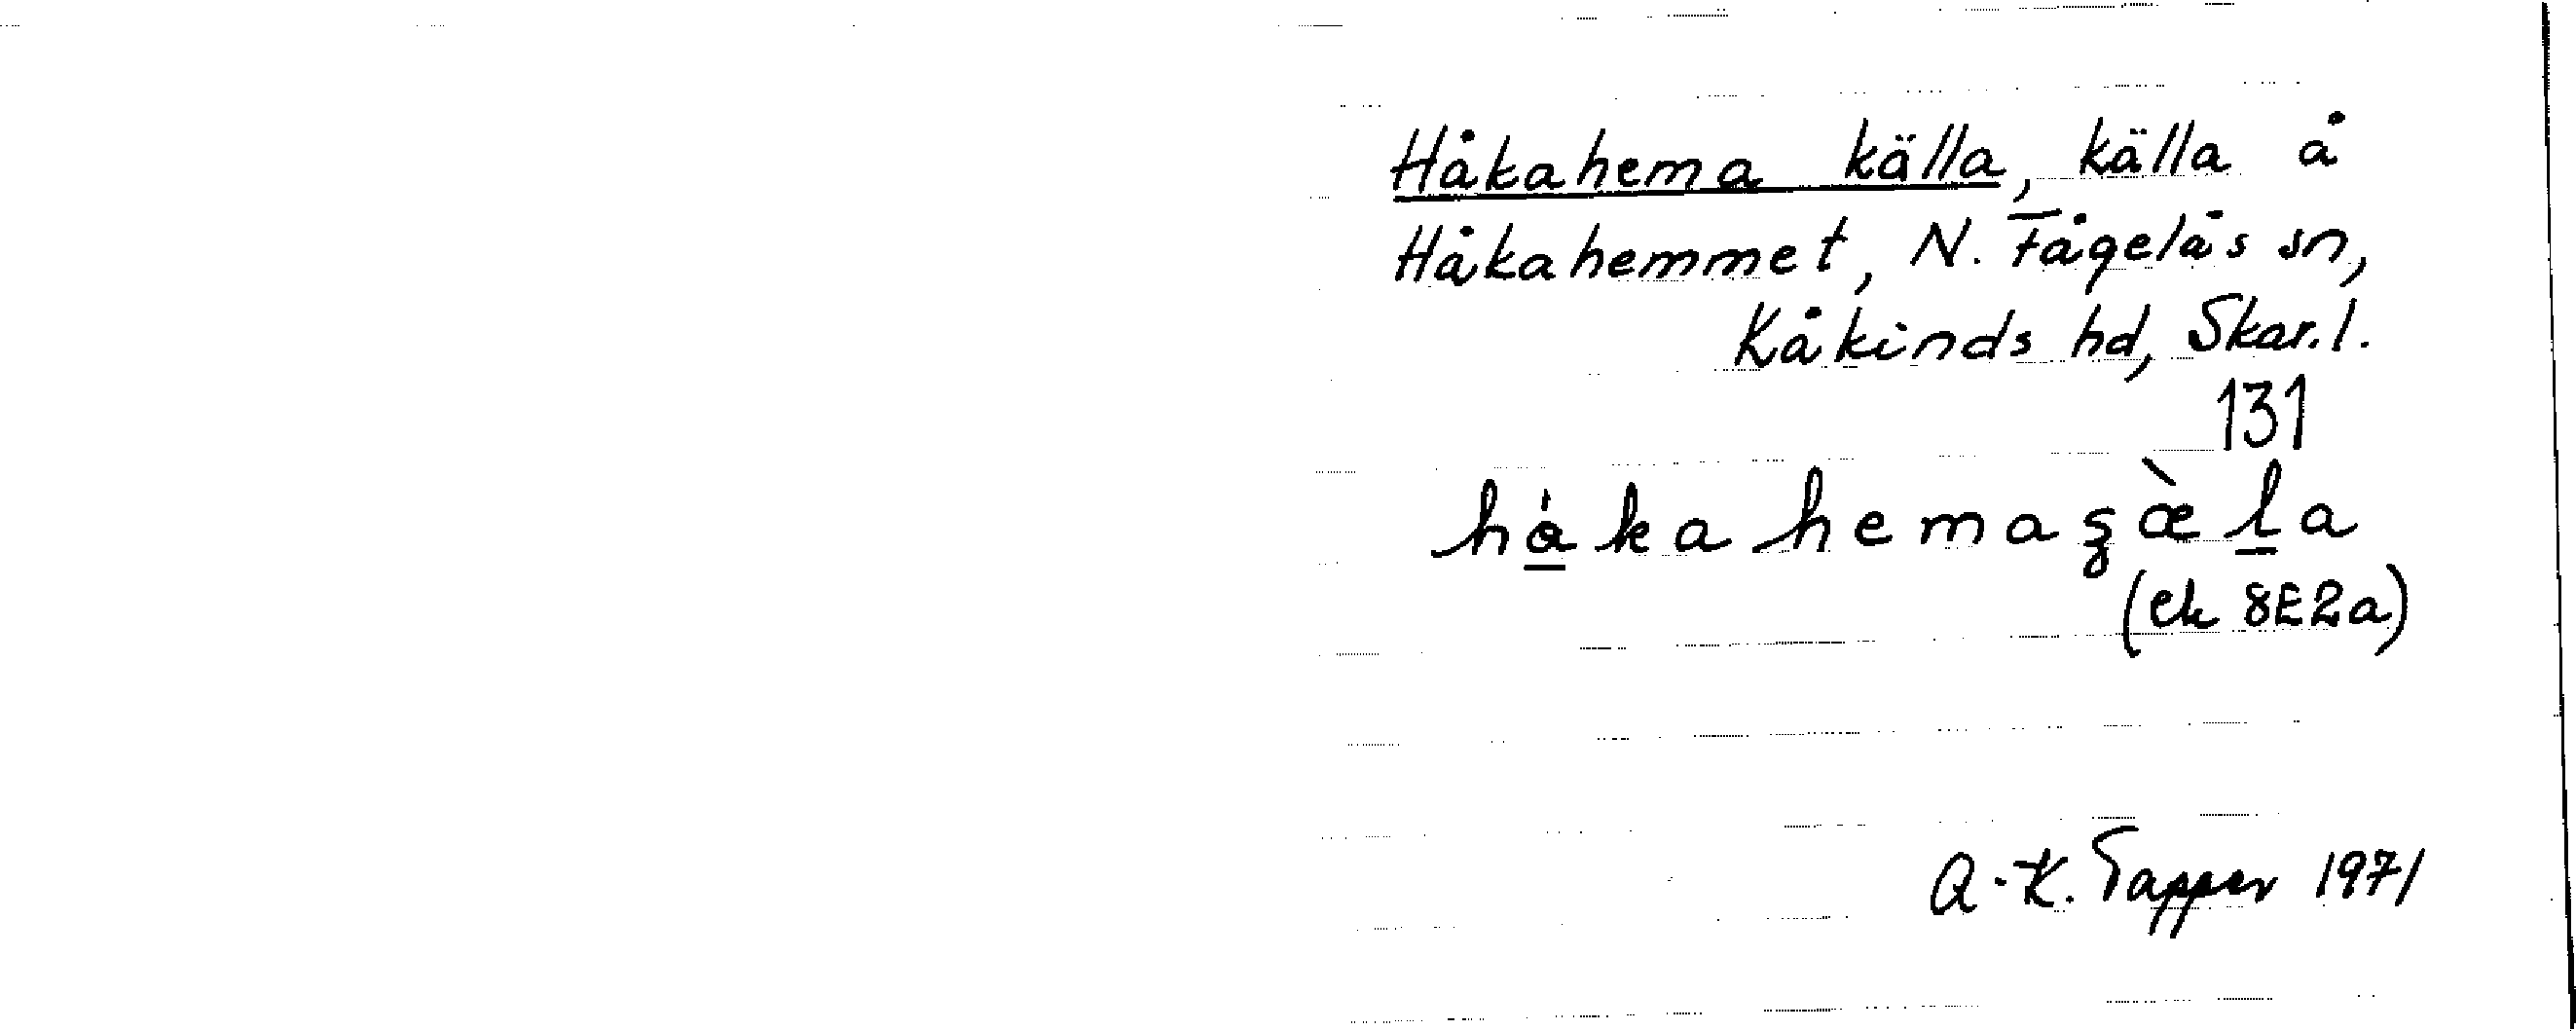 Håkahema källa, källa å
Håkahemmet, N. Fågelås sn,
Kåkinds hd, Skar. l.
131
hȧ̱kahemaʂæ̀ḻa
(ek 8E2a)
A-K. Tapper 1971